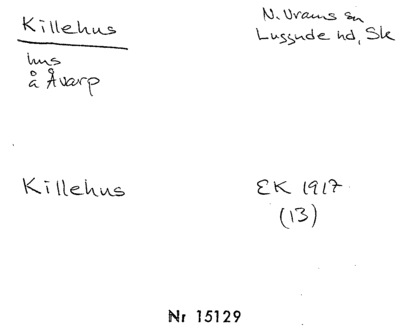 Killehus
N. Vrams sn
Luggude hd, Sk
hus
å Åvarp
Killehus
EK 1917
(13)
Nr 15129